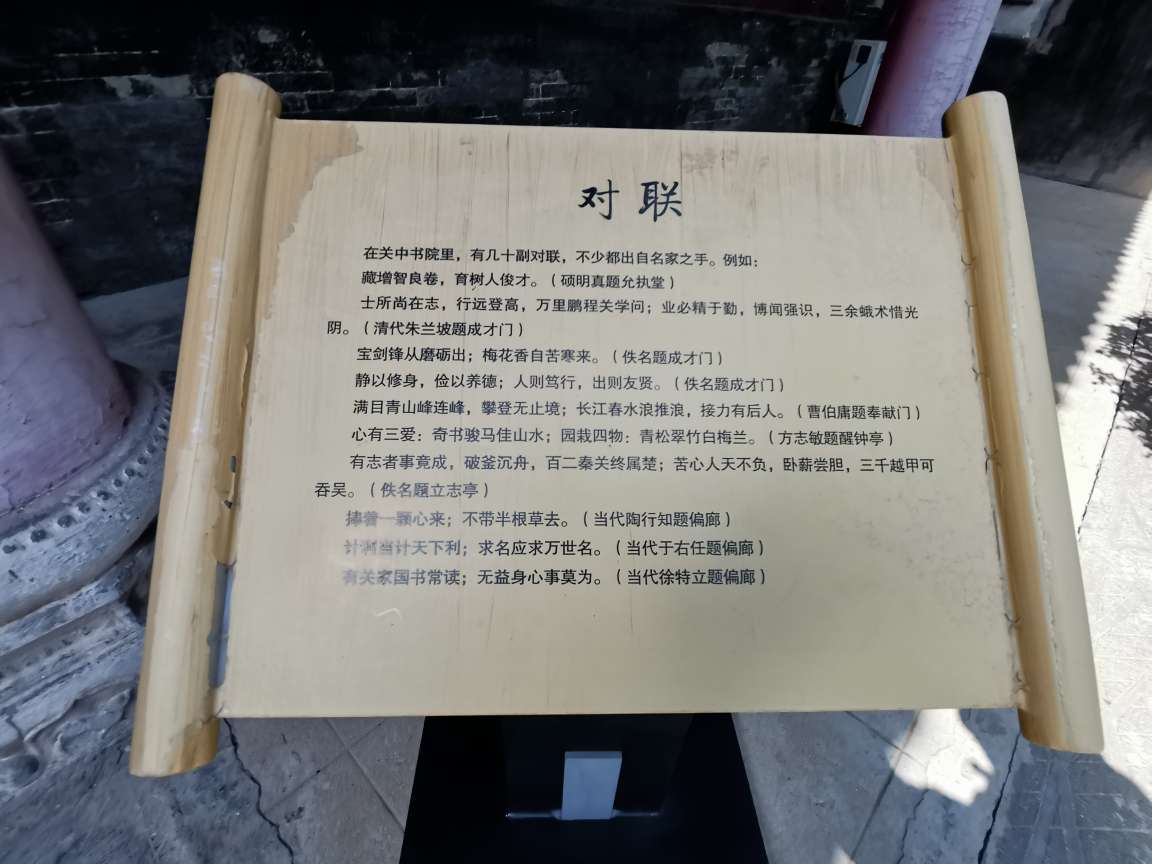 对联
在关中书院里，有几十副对联，不少都出自名家之手。例如：
藏增智良卷，育树人俊才。（硕明真题允执堂）
士所尚在志，行远登高，万里鹏程关学问；业必精于勤，博闻强识，三余蛾术惜光
阴。（清代朱兰坡题成才门）
宝剑锋从磨砺出；梅花香自苦寒来。（佚名题成才门）
静以修身，俭以养德；人则笃行，出则友贤。（佚名题成才门）
满目青山峰连峰，攀登无止境；长江春水浪推浪，接力有后人。（曹伯庸题奉献门）
心有三爱：奇书骏马佳山水；园栽四物：青松翠竹白梅兰。（方志敏题醒钟亭）
有志者事竟成，破釜沉舟，百二秦关终属楚；苦心人天不负，卧薪尝胆，三千越甲可
吞吴。（佚名题立志亭）
捧着一颗心来；不带半根草去。（当代陶行知题偏廊）
计利当计天下利；求名应求万世名。（当代于右任题偏廊）
有关家国书常读；无益身心事莫为。（当代徐特立题偏廊）